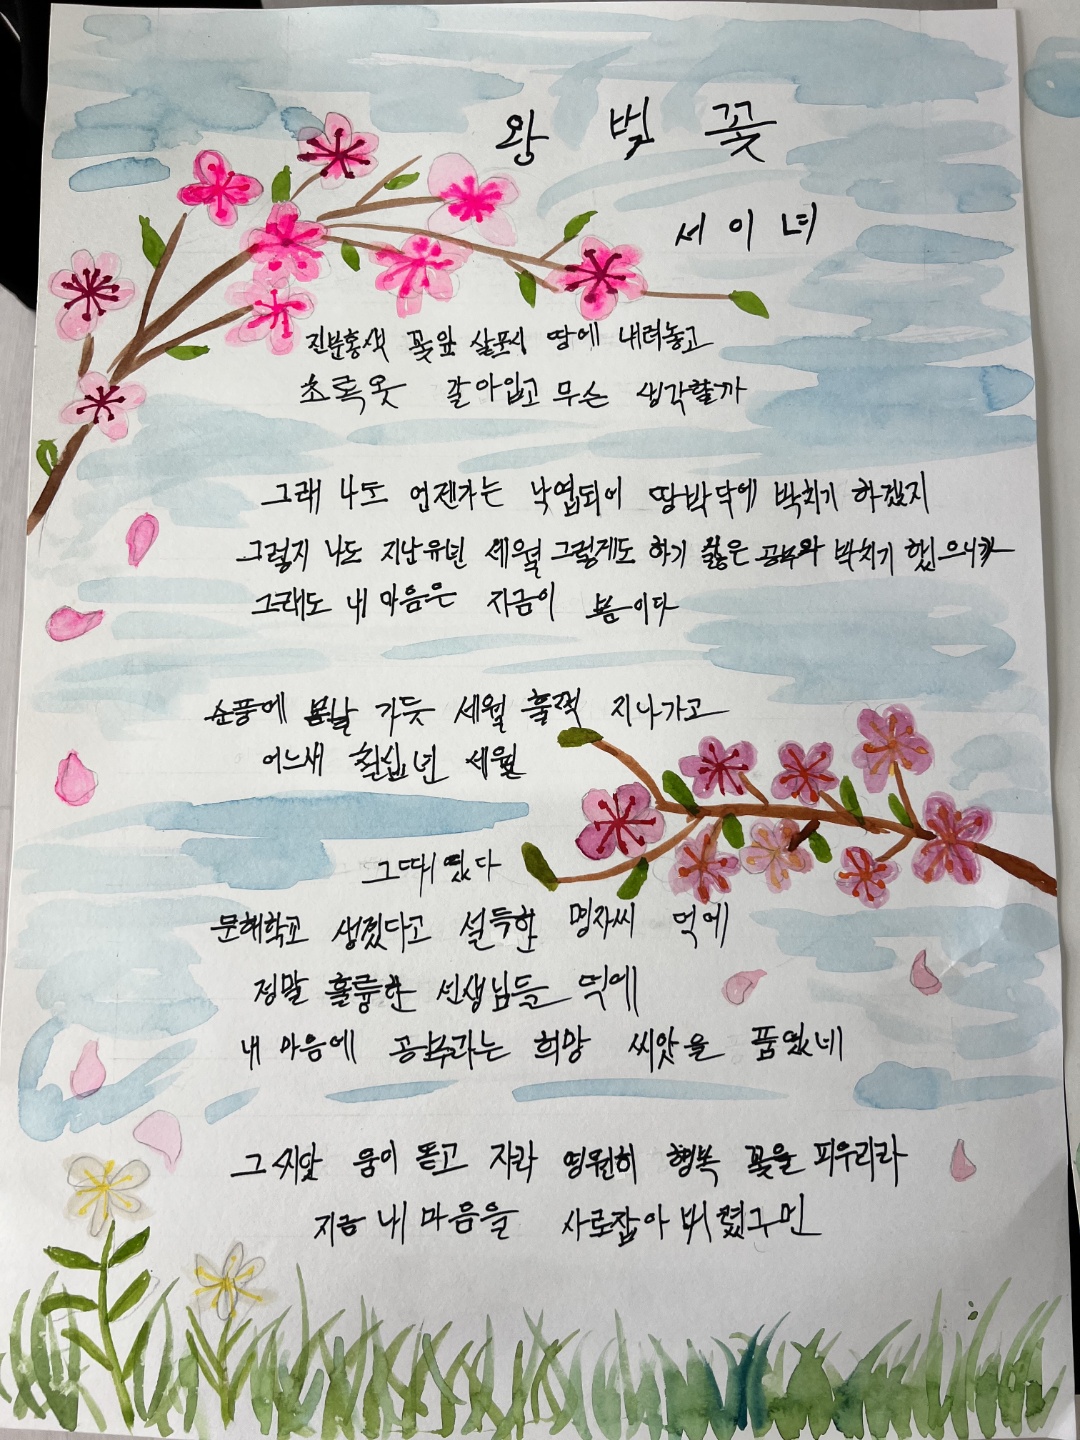 왕 벚 꽃
서 이 녀
진분홍색 꽃잎 살포시 땅에 내려놓고
초록옷 갈아입고 무슨 생각할까
그래 나도 언젠가는 낙엽되어 땅바닥에 박치기 하겠지
그렇지 나도 지난유년 세월 그렇게도 하기 싫은 공부와 박치기 했으니까
그래도 내 마음은 지금이 봄이다
순풍에 봄날 가듯 세월 훌쩍 지나가고
어느새 칠십년 세월
그때였다
문해학교 생겼다고 설득한 명자씨 덕에
정말 훌륭한 선생님들 덕에
내 마음에 공부라는 희망 씨앗을 품었네
그 씨앗 움이 돋고 자라 영원히 행복 꽃을 피우리라
지금 내 마음을 사로잡아 버렸구먼